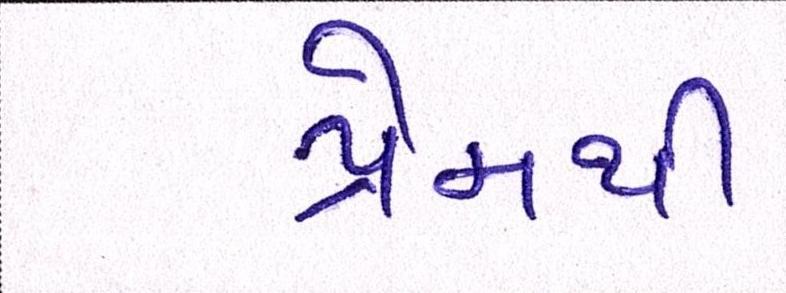 પ્રેમથી